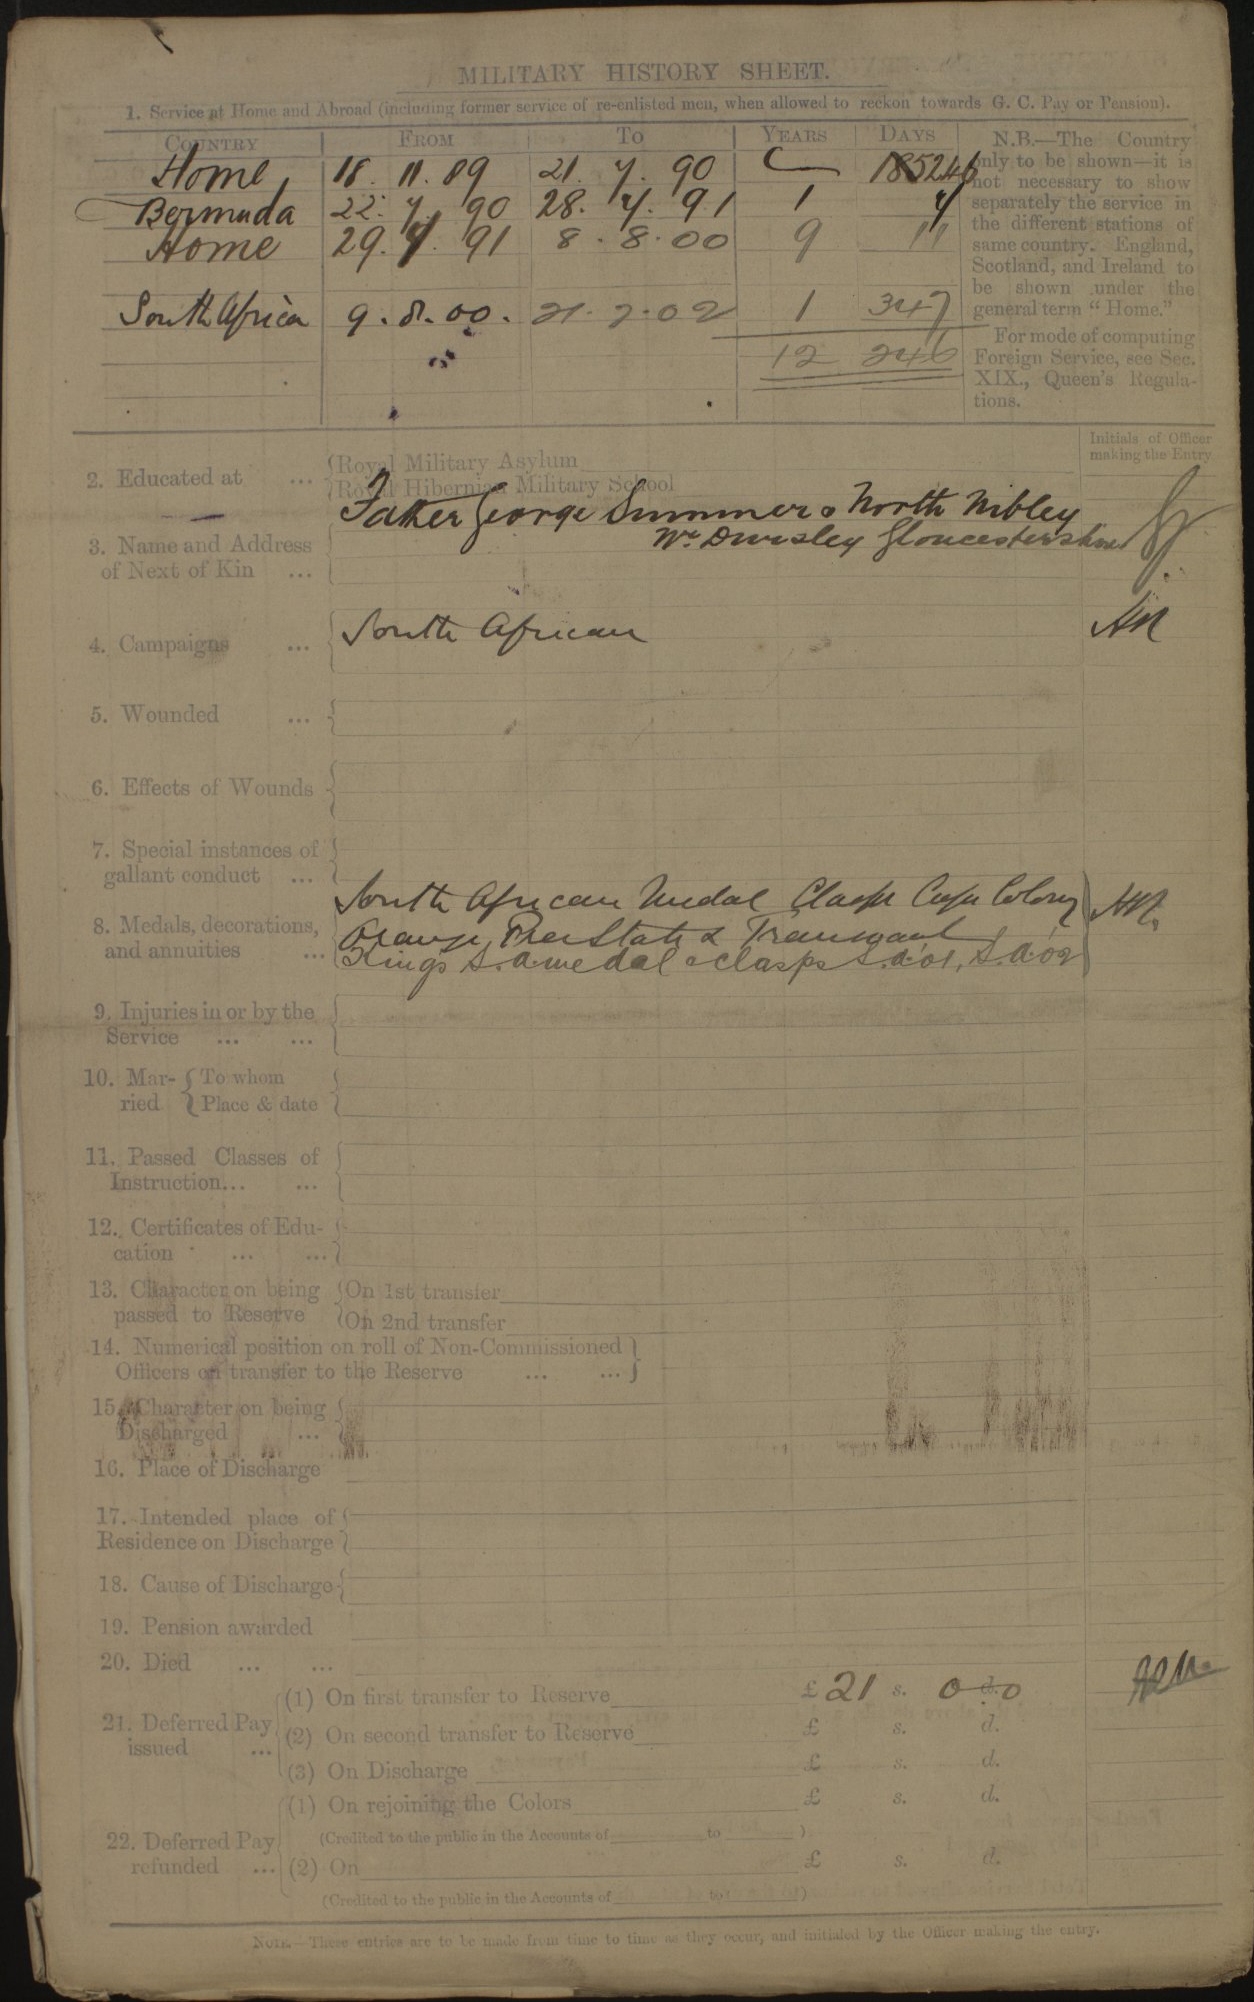 MILITARY HISTORY SHEET.
1. Service at Home and Abroad (including former service of re-enlisted men, when allowed to reckon towards G. C. Pay or Pension).
COUNTRY FROM TO YEARS DAYS
Home 18. 11. 89 21. 7. 90 246
Bermuda 22. 7. 90 28. 7. 91 1 7
Home 29. 7. 91 8. 8. 00 9 11
South Africa 9. 8. 00. 21. 7. 02 1 347
12 246
N.B.—The Country
only to be shown—it is
not necessary to show
separately the service in
the different stations of
same country. England,
Scotland, and Ireland to
be shown under the
general term "Home."
For mode of computing
Foreign Service, see Sec.
XIX., Queen's Regula-
tions.
Initials of Officer
making the Entry
2. Educated at ... Royal Military Asylum
Royal Hibernian Military School
3. Name and Address
of Next of Kin ...
Father George Summers North Nibley
Nr Dursley Gloucestershire
4. Campaigns ... South African
5. Wounded ...
6. Effects of Wounds
7. Special instances of
gallant conduct ...
8. Medals, decorations,
and annuities ...
South African Medal Clasps Cape Colony
Orange Free State & Transvaal
Kings S.A medal & clasps S.A'01, S.A'02
9. Injuries in or by the
Service ... ...
10. Mar- To whom
ried Place & date
11. Passed Classes of
Instruction... ...
12. Certificates of Edu-
cation ... ...
13. Character on being On 1st transfer
passed to Reserve On 2nd transfer
14. Numerical position on roll of Non-Commissioned
Officers on transfer to the Reserve ... ...
15. Character on being
Discharged ...
16. Place of Discharge
17. Intended place of
Residence on Discharge
18. Cause of Discharge
19. Pension awarded
20. Died ... ...
21. Deferred Pay
issued ...
(1) On first transfer to Reserve £ 21 s. 0 d. 0
(2) On second transfer to Reserve £ s. d.
(3) On Discharge £ s. d.
22. Deferred Pay
refunded ...
(1) On rejoining the Colors £ s. d.
(Credited to the public in the Accounts of to )
(2) On £ s. d.
(Credited to the public in the Accounts of to )
NOTE.—These entries are to be made from time to time as they occur, and initialed by the Officer making the entry.